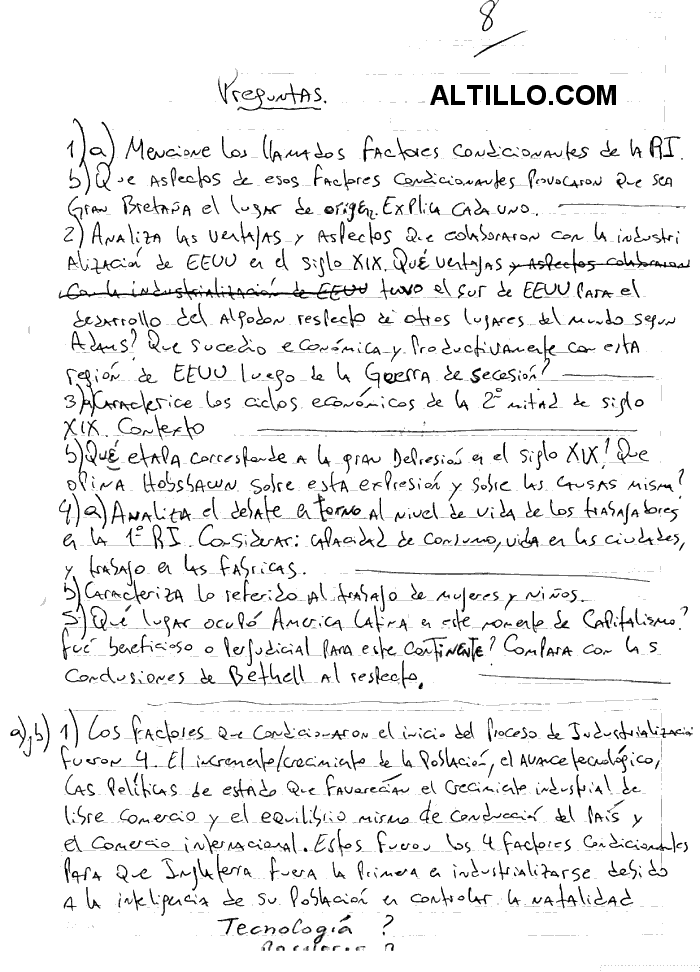 8
Preguntas.
ALTILLO.COM
1) a) Mencione los llamados factores condicionantes de la RI.
b) Que aspectos de esos factores condicionantes provocaron que sea
Gran Bretaña el lugar de origen. Explica cada uno.
2) Analiza las ventajas y aspectos que colaboraron con la industri
alización de EEUU en el siglo XIX. Qué ventajas y aspectos colaboraron
con la industrialización de EEUU tuvo el sur de EEUU para el
desarrollo del algodon respecto de otros lugares del mundo segun
Adams? Que sucedio economica y productivamente con esta
región de EEUU luego de la Guerra de secesión?
3) a) Caracterice los ciclos económicos de la 2º mitad de siglo
XIX. Contexto
b) Qué etapa corresponde a la gran Depresión en el siglo XIX? Que
opina Hobsbawn sobre esta expresión y sobre las causas misma?
4) a) Analiza el debate en torno al nivel de vida de los trabajadores
en la 1º RI. Considerar: capacidad de consumo, vida en las ciudades,
y trabajo en las fabricas.
b) Caracteriza lo referido al trabajo de mujeres y niños.
5) Qué lugar ocupó America Latina en este momento de Capitalismo?
fué beneficioso o perjudicial para este continente? Compara con las
conclusiones de Bethell al respecto.
a), b) 1) Los factores que condicionaron el inicio del proceso de Industrialización
fueron 4. El incremento/crecimiento de la población, el avance tecnológico,
las políticas de estado que favorecían el crecimiento industrial de
libre comercio y el equilibrio mismo de conducción del país y
el comercio internacional. Estos fueron los 4 factores condicionantes
para que Inglaterra fuera la primera en industrializarse debido
a la inteligencia de su población en controlar la natalidad
Tecnología ?